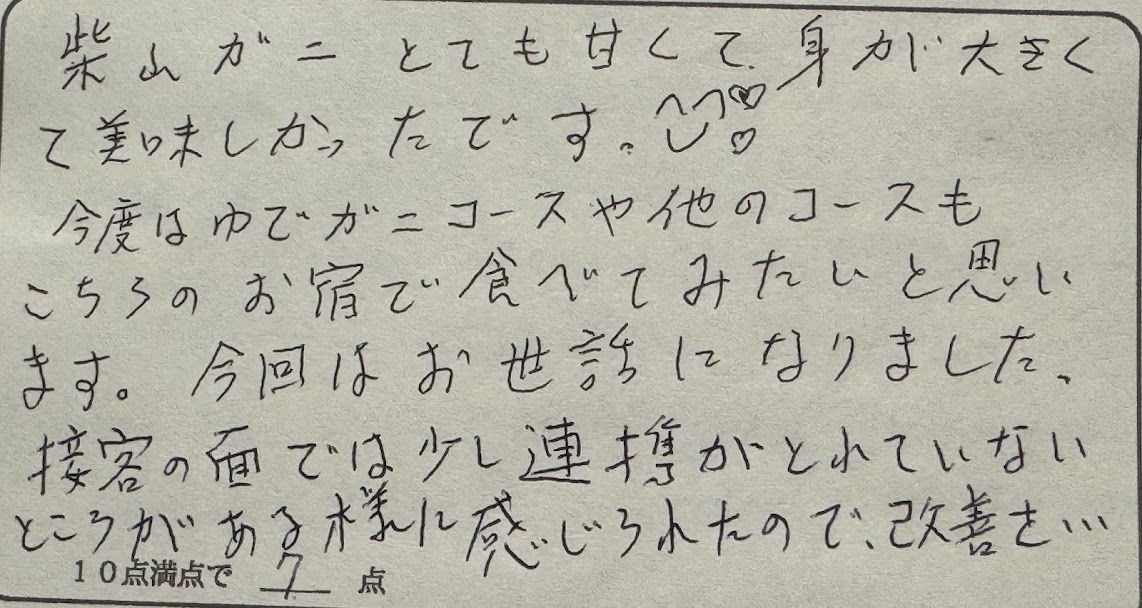 柴山ガニとても甘くて、身が大きく
て美味しかったです。
今度はゆでガニコースや他のコースも
こちらのお宿で食べてみたいと思い
ます。今回はお世話になりました。
接客の面では少し連携がとれていない
ところがある様に感じられたので、改善を…
10点満点で 7 点